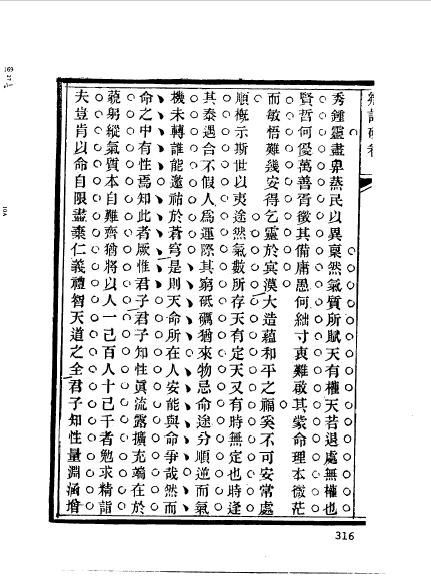 秀鍾靈盡畀蒸民以異稟然氣質所賦天有權天若退處無權也
賢哲何優萬善胥徵其備庸愚何絀寸衷難啟其蒙命理本微茫
而敏悟難幾安得乞靈於冥漠大造蘊和平之福奚不可安常處
順概示斯世以夷途然氣數所存天有定天又有時無定也時逢
其泰遇合不假人為運際其窮砥礪猶來物忌命途分順逆而氣
機未轉誰能邀福於蒼穹是則天命所在人安能與命爭哉然而
命之中有性焉知此者厥惟君子君子知性眞流露擴充端在於
藐躬縱氣質本自難齊猶將以人一己百人十己千者勉求精詣
夫豈肯以命自限盡棄仁義禮智天道之全君子知性量淵涵增
316
169
10A